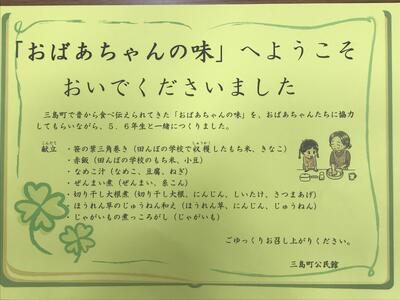 「おばあちゃんの味」へようこそ
おいでくださいました
三島町で昔から食べ伝えられてきた「おばあちゃんの味」を、おばあちゃんたちに協力
してもらいながら、5．6年生と一緒につくりました。
献立 ・笹の葉三角巻き（田んぼの学校で収穫したもち米、きなこ）
・赤飯（田んぼの学校のもち米、小豆）
・なめこ汁（なめこ、豆腐、ねぎ）
・ぜんまい煮（ぜんまい、糸こん）
・切り干し大根煮（切り干し大根、にんじん、しいたけ、さつまあげ）
・ほうれん草のじゅうねん和え（ほうれん草、にんじん、じゅうねん）
・じゃがいもの煮っころがし（じゃがいも）
ごゆっくりお召し上がりください。
三島町公民館